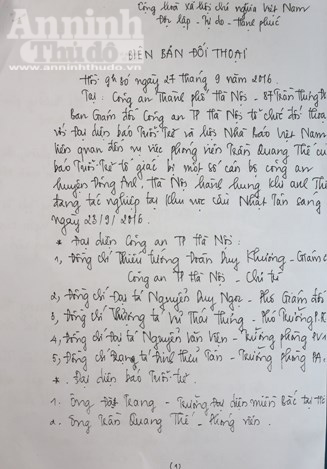 An ninh
Thủ đô
www.anninhthudo.vn
Cộng hoà xã hội chủ nghĩa Việt Nam
Độc lập - Tự do - Hạnh phúc
BIÊN BẢN ĐỐI THOẠI
Hồi 9h30 ngày 27 tháng 9 năm 2016.
Tại: Công an Thành phố Hà Nội - 87 Trần Hưng Đạo
Ban Giám đốc Công an TP Hà Nội tổ chức đối thoại
với Đại diện báo Tuổi Trẻ và Hội Nhà Báo Việt Nam
liên quan đến vụ việc phóng viên Trần Quang Thế của
báo Tuổi Trẻ tố giác bị một số cán bộ công an
huyện Đông Anh, Hà Nội hành hung khi anh Thế
đang tác nghiệp tại khu vực cầu Nhật Tân sáng
ngày 23/9/2016.
* Đại diện Công an TP Hà Nội:
1, Đồng chí Thiếu tướng Đoàn Duy Khương - Giám đ
Công an TP Hà Nội - Chủ trì
2, Đồng chí Đại tá Nguyễn Duy Ngọc - Phó Giám đố
3, Đồng chí Thượng tá Vũ Thái Hưng - Phó Trưởng P.
4, Đồng chí Đại tá Nguyễn Văn Viện - Trưởng phòng PV1
5, Đồng chí tá Đinh Hữu Tân - Trưởng phòng PA
* Đại diện báo Tuổi trẻ
1. Ông Trang - Trưởng đại diện miền Bắc tại Hà
2. Ông Trần Quang Thế - Phóng viên.
(1)